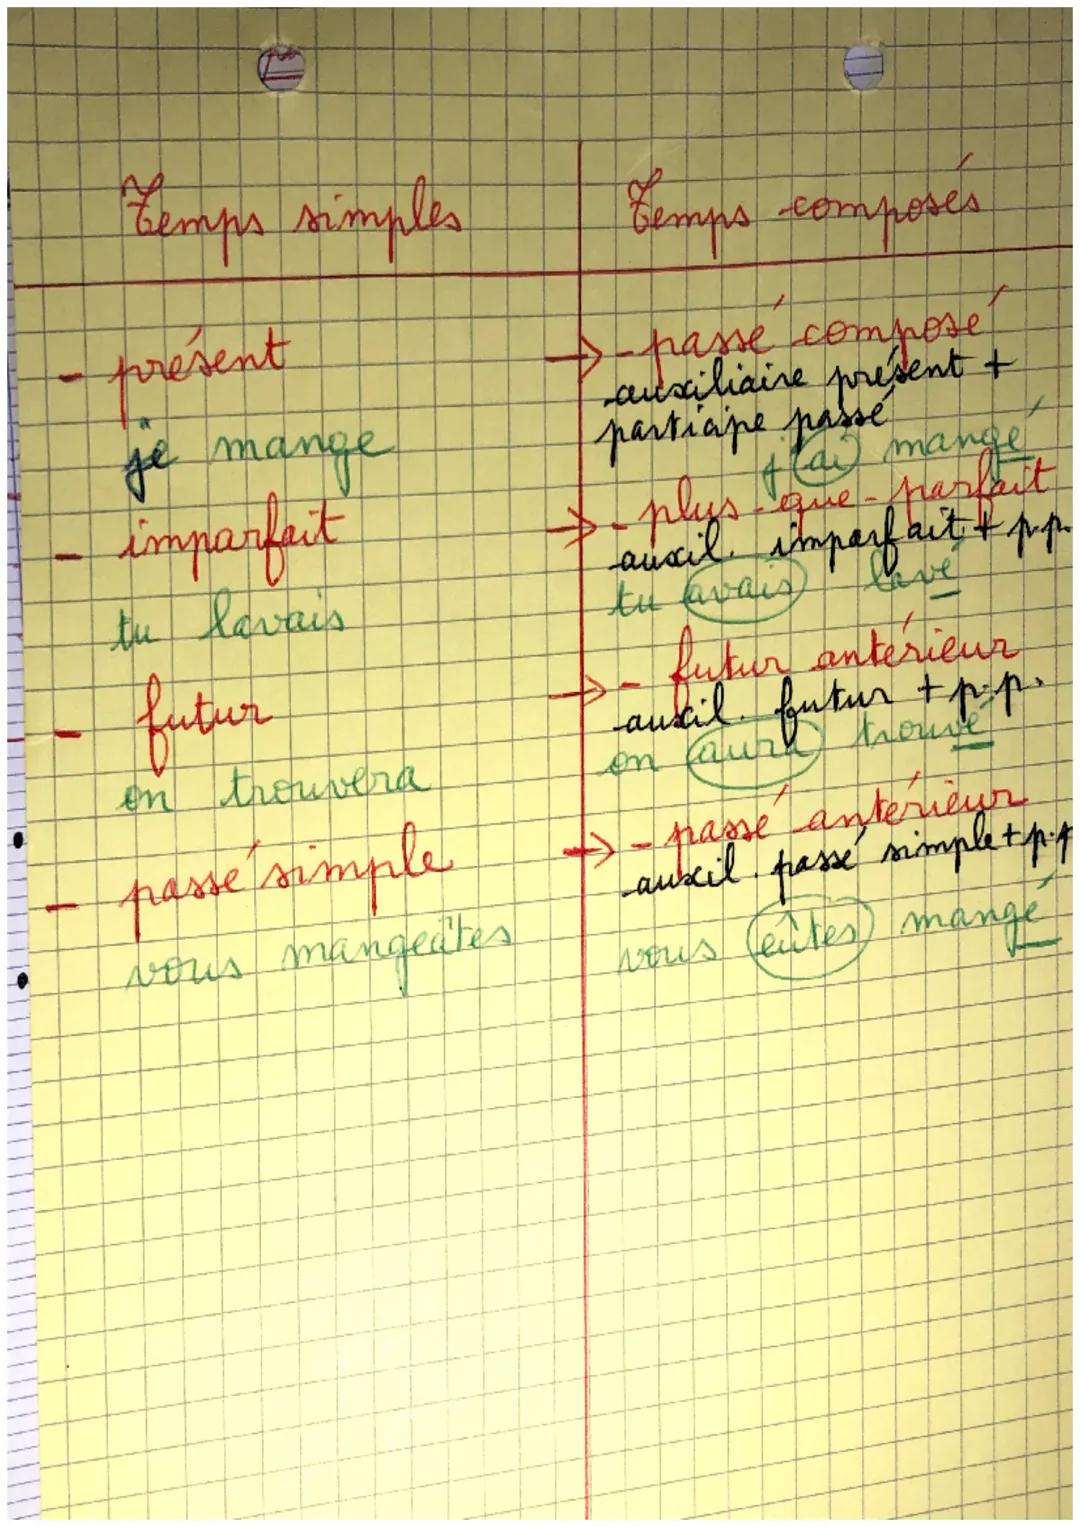 Temps simples
Temps composés
- présent
je mange
- imparfait
tu lavais
- futur
on trouvera
- passé simple
vous mangeâtes
→ - passé composé
auxiliaire présent +
participe passé
j'ai mangé
→ - plus-que-parfait
auxil. imparfait + p.p.
tu avais lavé
→ - futur antérieur
auxil. futur + p.p.
on aura trouvé
→ - passé antérieur
auxil. passé simple + p.p
vous eûtes mangé